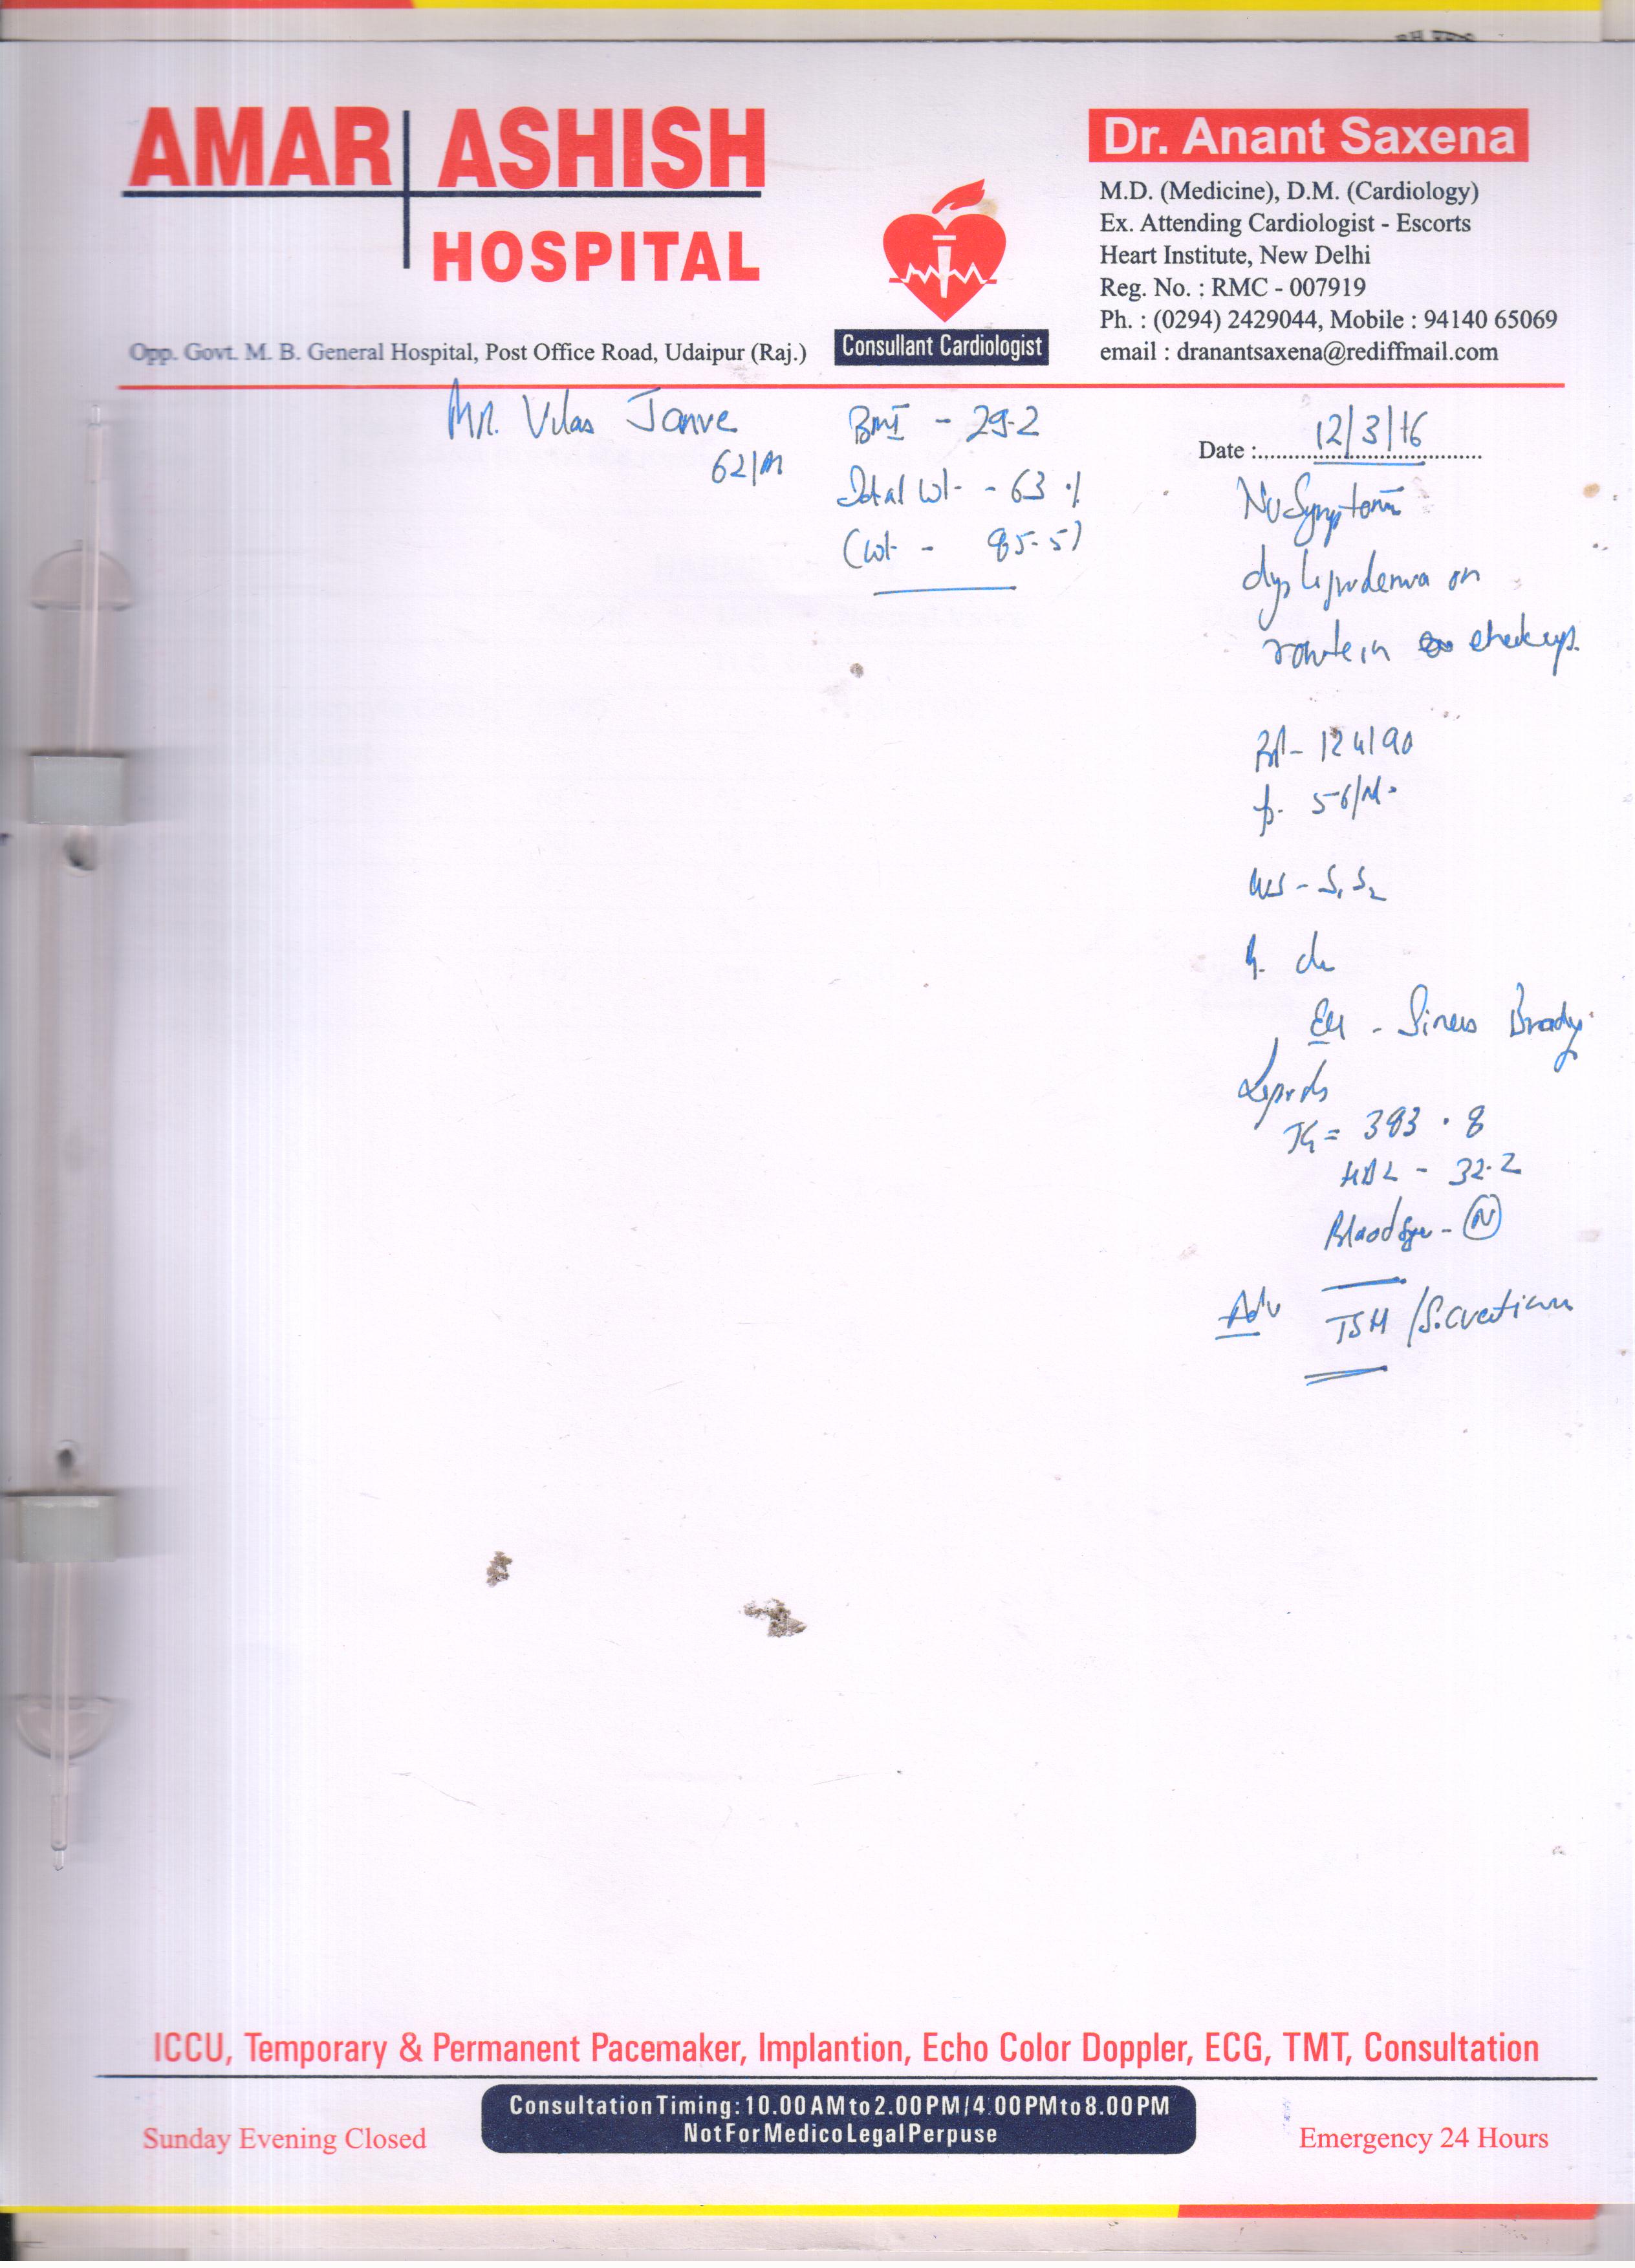 AMAR ASHISH
HOSPITAL
Opp. Govt. M. B. General Hospital, Post Office Road, Udaipur (Raj.)
Consullant Cardiologist
Dr. Anant Saxena
M.D. (Medicine), D.M. (Cardiology)
Ex. Attending Cardiologist - Escorts
Heart Institute, New Delhi
Reg. No. : RMC - 007919
Ph. : (0294) 2429044, Mobile : 94140 65069
email : dranantsaxena@rediffmail.com
Mr. Vilas Janve
62/M
BMI - 29.2
Wt - 63
(Wt - 85.5)
Date : 12/3/16
No Symptom
dyslipidemia on
routein checkups.
BP - 124/90
p. 56/M.
CVS - S1 S2
- Sinus Brady
Lipids
TG = 393.8
HDL - 32.2
Blood Sgr - N
Adv TSH / S. creatinin
ICCU, Temporary & Permanent Pacemaker, Implantion, Echo Color Doppler, ECG, TMT, Consultation
Consultation Timing : 10.00 AM to 2.00 PM / 4.00 PM to 8.00 PM
Not For Medico Legal Perpuse
Sunday Evening Closed
Emergency 24 Hours